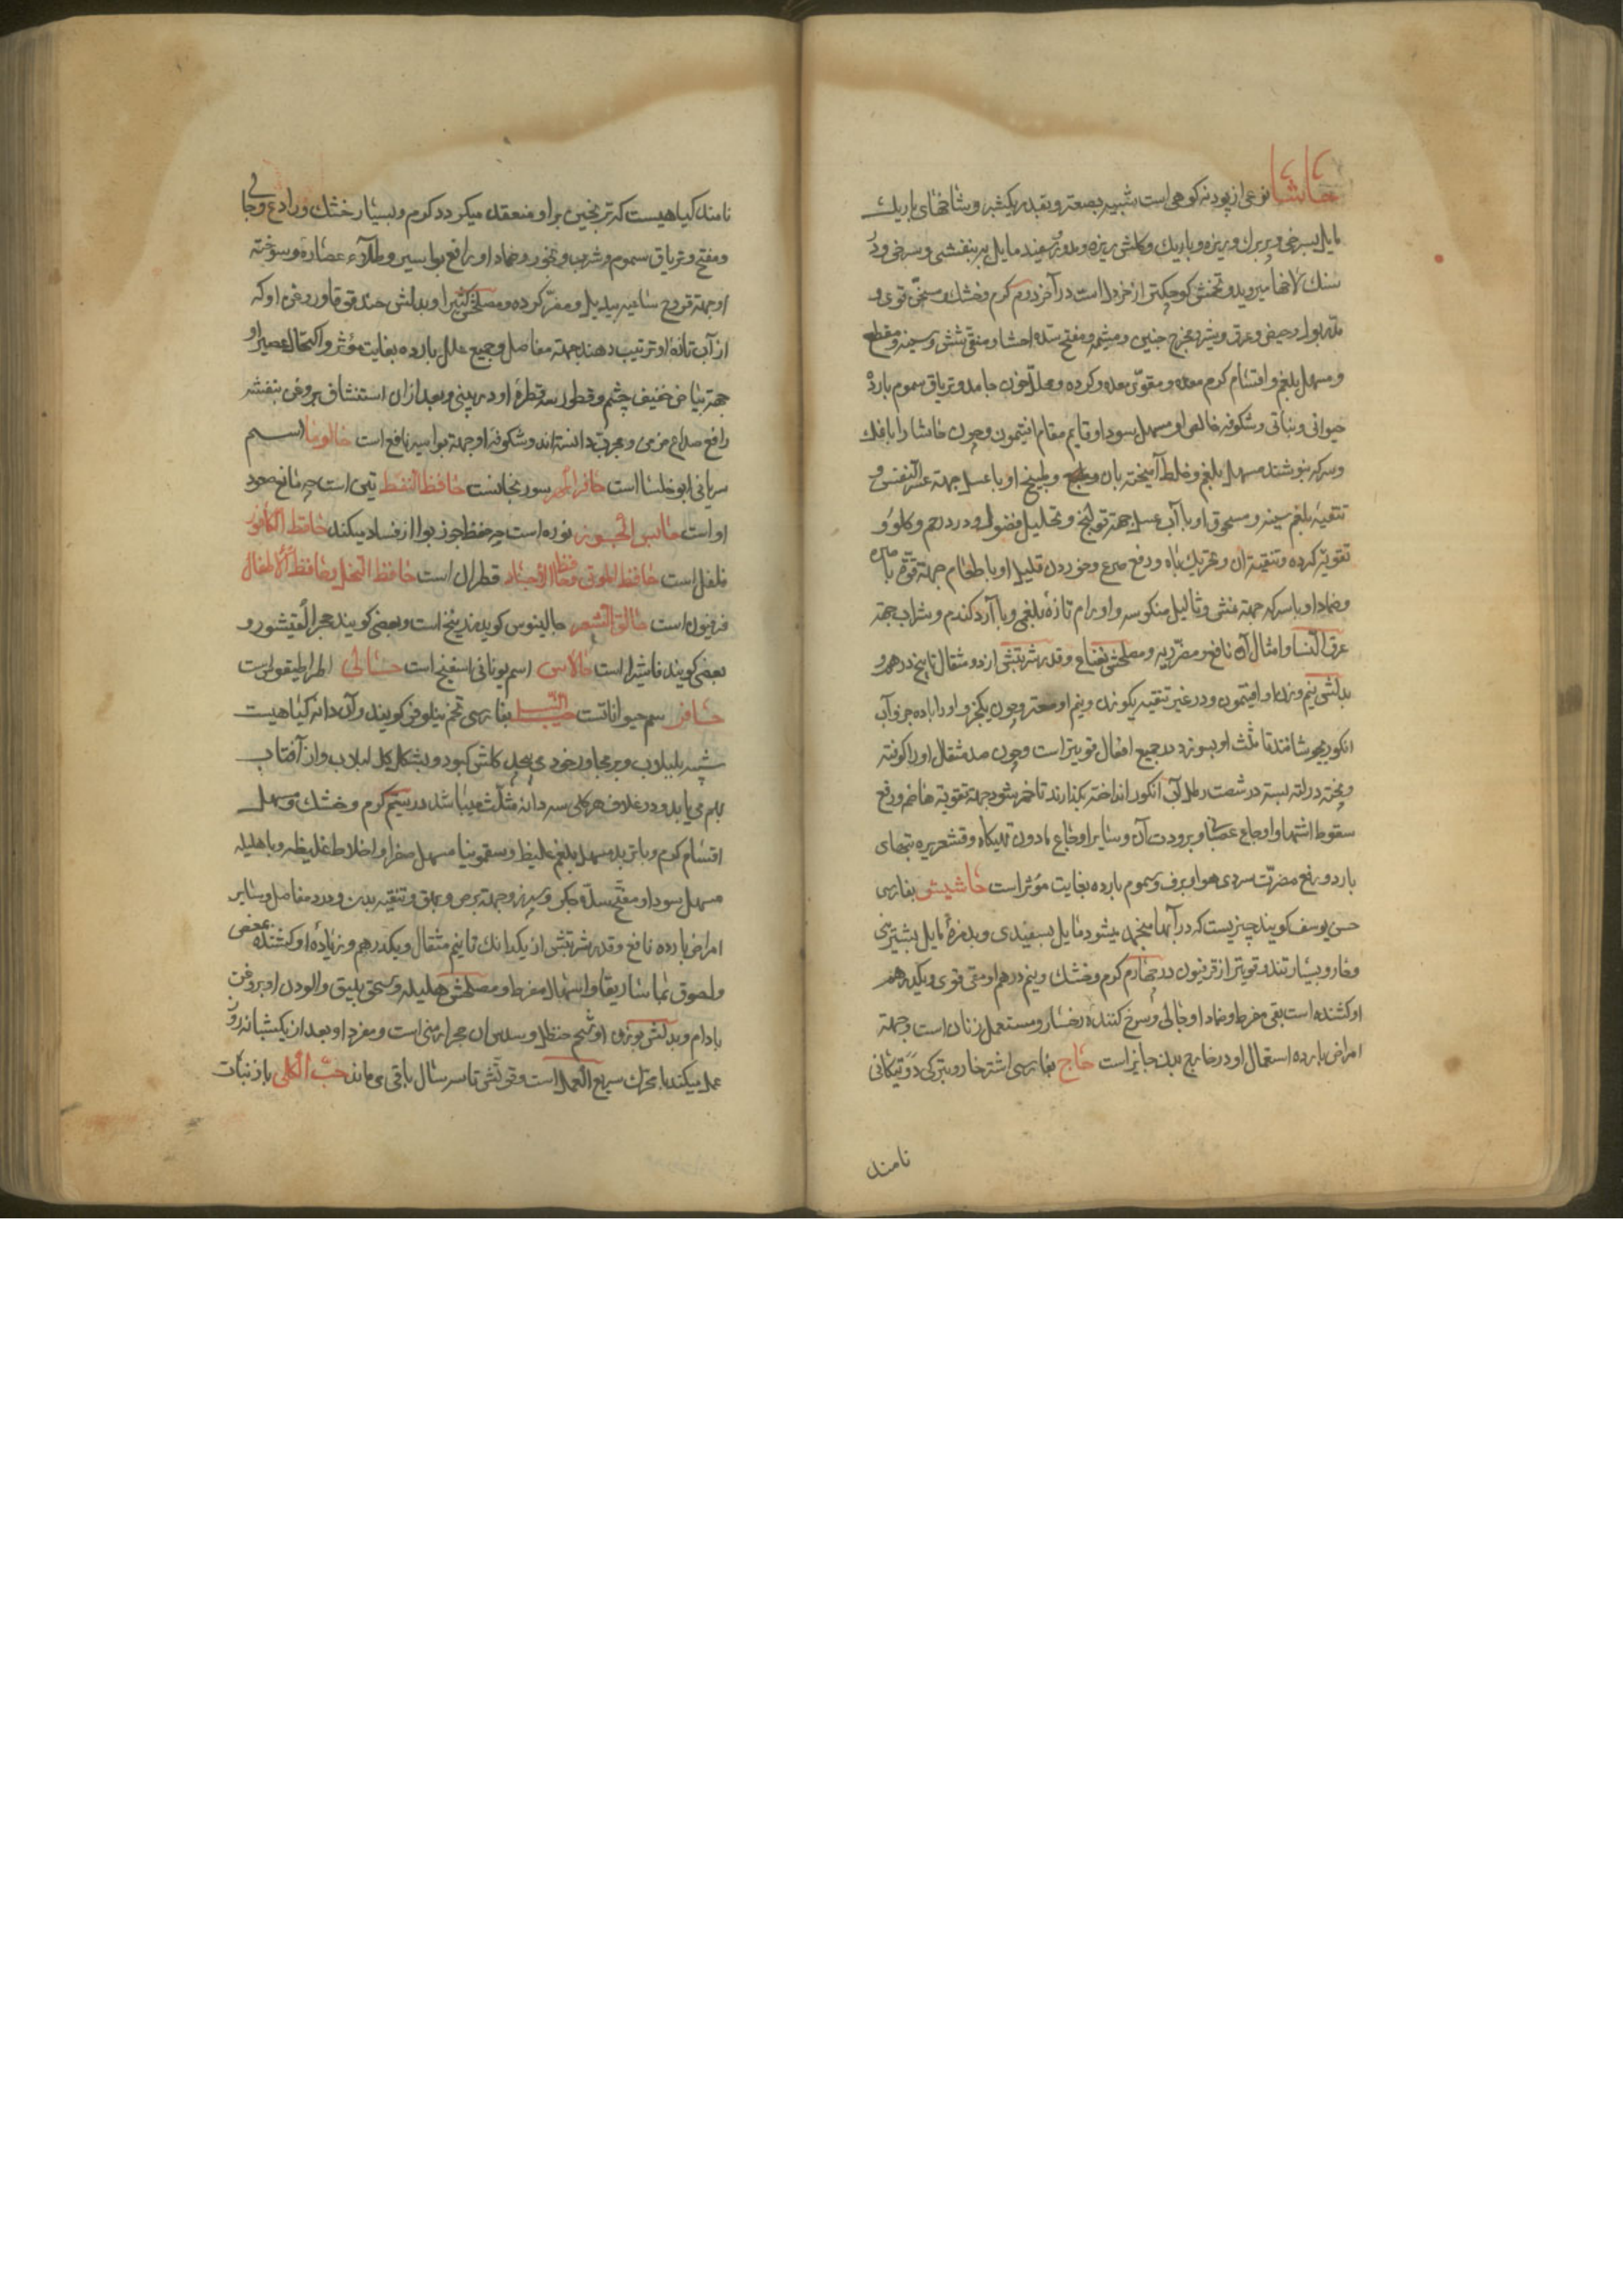 حاشا نوعی از پودنه کوهی است شبیه بصعتر و بقدر یکشبر و شاخهای باریک
مایل بسرخی و پربرک و ریزه و باریک و کلش ریزه و مدور و سفید مایل ببنفشی و سرخی و در
سنک لاخها میروید و تخمش کوچکتر از خردل است در آخر دوم کرم و خشک و مسخن قوی و
مدر بول و حیض و عرق و شیر و مخرج جنین و مشیمه و مفتح سده احشا و منقی شش و سینه و مقطع
و مسهل بلغم و اقسام کرم معده و مقوی معده و کرده و محلل خون جامد و تریاق سموم بارده
حیوانی و نباتی و شکوفه خالص او مسهل سودا و قایم مقام افتیمون و چون حاشا را با نمک
و سرکه بنوشند مسهل بلغم و خلط آمیخته بان و طبیخ او با عسل جهته عسر النفس و
تنقیه بلغم سینه و مسحوق او با آب عسل جهته قولنج و تحلیل فضول و درد رحم و کلو و
تقویة کرده و تنقیه آن و تحریک باه و رفع صرع و خوردن قلیل او با طعام جهته قوة باصره
و ضماد او با سرکه جهته نمش و ثالیل منکوسه و اورام تازه بلغمی و با آرد کندم و شراب جهته
عرق النسا و امثال آن نافع و مضر ریه و مصلحش نعناع و قدر شربتش از دو مثقال تا پنج درهم و
بدلش نیم وزن او افتیمون و در غیر تنقیه یکوزن و نیم او صعتر و چون یکجزو او را با ده جزو آب
انکور بجوشانند تا ثلث او بسوزد در جمیع افعال قویتر است و چون صد مثقال او را کوفته
و بیخته در لته بسته در شصت رطل آب انکور انداخته بکذارند تا خمر شود جهته تقویة هاضمه و رفع
سقوط اشتها و اوجاع عصبا و برودت آن و سایر اوجاع مادون تهیکاه و قشعریره تبهای
بارد و رفع مضرت سردی هوا و برف و سموم بارده بغایت مؤثر است حاشیش بفارسی
حسن یوسف کویند چیزیست که در آبها منجمد میشود مایل بسفیدی و بدمزه مایل بشیرینی
و حار و بسیار تند و قویتر از فرفیون در چهارم کرم و خشک و نیم درهم او مقی قوی و یکدرهم
او کشنده است بقی مفرط و ضماد او جالی و سرخ کننده رخسار و مستعمل زنان است و جهته
امراض بارده استعمال او در خارج بدن جایز است حاج بفارسی اشتر خار و بترکی دوه تیکانی
نامند
نامند کیاهیست که ترنجبین بر او منعقد میکردد کرم و بسیار خشک و رادع و جالی
و مفتح و تریاق سموم و شرب و بخور و ضماد او رافع بواسیر و طلاء عصاره و سوخته
او جهته قروح ساعیه بیدیل و مضر کرده و مصلحش کتیرا و بدلش حندقوقا و روغن او که
از آب تازه او ترتیب دهند جهته مفاصل و جمیع علل بارده بغایت مؤثر و اکتحال عصیر او
جهته بیاض خفیف چشم و قطور سه قطره او در بینی و بعد از ان استنشاق بروغن بنفشه
رافع صداع مزمن و مجرب دانسته اند و شکوفه او جهته بواسیر نافع است حالوما اسم
سریانی ابوخلسا است حافر المهر سورنجانست حافظ النفط تبن است چه مانع صعود
او است حابس الجوز نوره است چه حفظ جوز بوا از فساد میکند حافظ الکافور
فلفل است حافظ الموتی و حافظ الاجساد قطران است حافظ النحل و حافظ الاطفال
فرفیون است حالق الشعر جالینوس کوید زرنیخ است و بعضی کویند حجر القیشور و
بعضی کویند فاشرا است حالاس اسم یونانی اسفنج است حسالی اطراطیقوس است
حافر سم حیواناتست حب النیل بفارسی تخم نیلوفر کویند و آن دانه کیاهیست
شبیه بلبلاب و بر مجاور خود می پیچد کلش کبود و بشکل کل لبلاب و از آفتاب
بهم می یابد و در غلاف هر کلی سه دانه مثلث میباشد در سیم کرم و خشک و مسهل
اقسام کرم و با تربد مسهل بلغم غلیظ و سقمونیا مسهل صفرا و اخلاط غلیظه و با هلیله
مسهل سودا و مفتح سده جکر و سپرز و جهته برص و بهق و تنقیه بدن و درد مفاصل و سایر
امراض بارده نافع و قدر شربتش از یکدانک تا نیم مثقال و یکدرهم و زیاده او کشنده بمغص
و لصوق بماساریقا و اسهال مفرط و مصلحش هلیله و سحق بلیق و آلودن او بروغن
بادام و بدلش بوزن او شحم حنظل و سدس ان حجر ارمنی است و مفرد او بعد از یکشبانه روز
عمل میکند با محرک سریع العمل است و قوتش تا سه سال باقی می ماند حب الکلی بار نبات